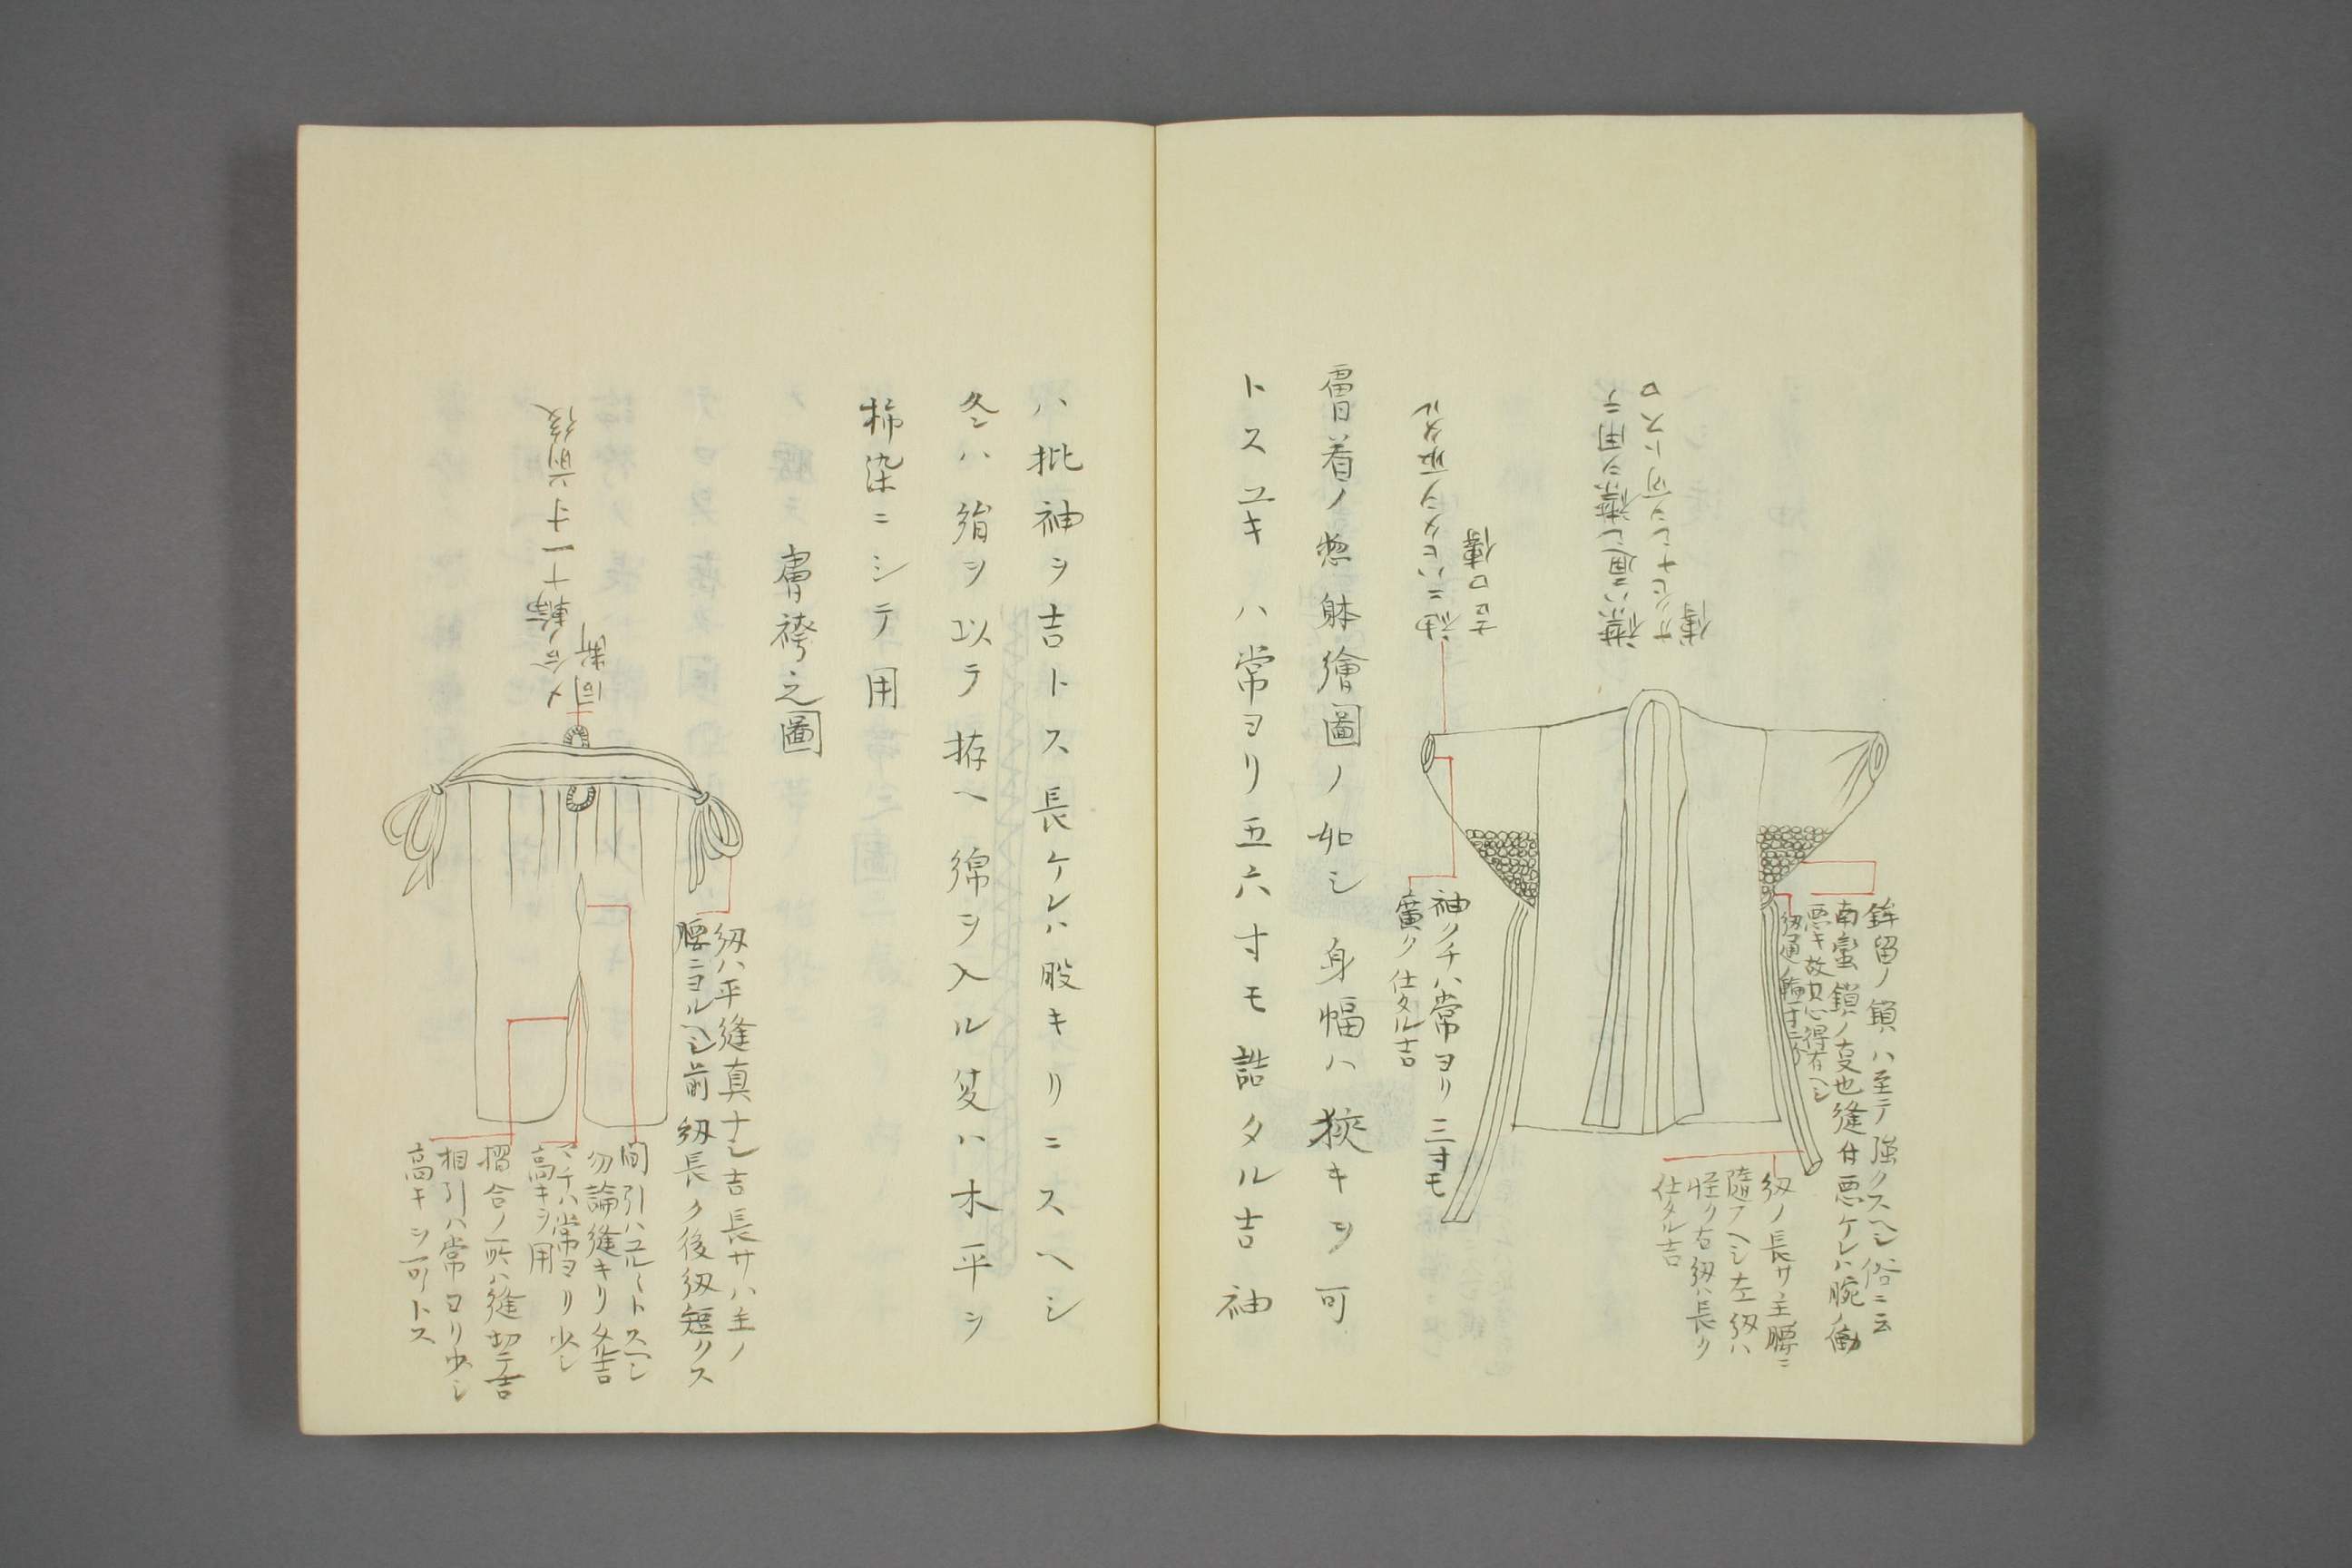 襟ハ通し襟ヲ用ニテ
袖ニハヒタヲ取タル
吉口傳
鉾留ノ鎖ハ至テ強クスヘシ俗ニ云
南蛮鎖ノ支也縫付悪ケレハ腕ノ働
悪キ故其心得有ヘシ
紐ノ長サ主腰ニ
隨フヘシ左紐ハ
怪ク右紐ハ長ク
仕タル吉
袖クチハ常ヨリ三寸モ
廣ク仕タル吉
膚着ノ惣躰繪圖ノ如シ身幅ハ狹キヲ可
トスユキハ常ヨリ五六寸モ詰タル吉袖
ハ批袖ヲ吉トス長ケレハ股キリニスヘシ
冬ハ絹ヲ以テ拵ヘ綿ヲ入ル夏ハ木平ヲ
柿染ニシテ用
膚袴之圖
〆合ノ輪十一寸前後
紐ハ平縫真ナシ吉長サハ主ノ
腰ニヨルヘシ前紐長ク後紐短クス
間引ハユル〱トスヘシ
勿論縫キリタル吉
マチハ常ヨリ少シ
高キヲ用
摺合ノ所ハ縫切テ吉
相引ハ常ヨリ少シ
高キヲ可トス